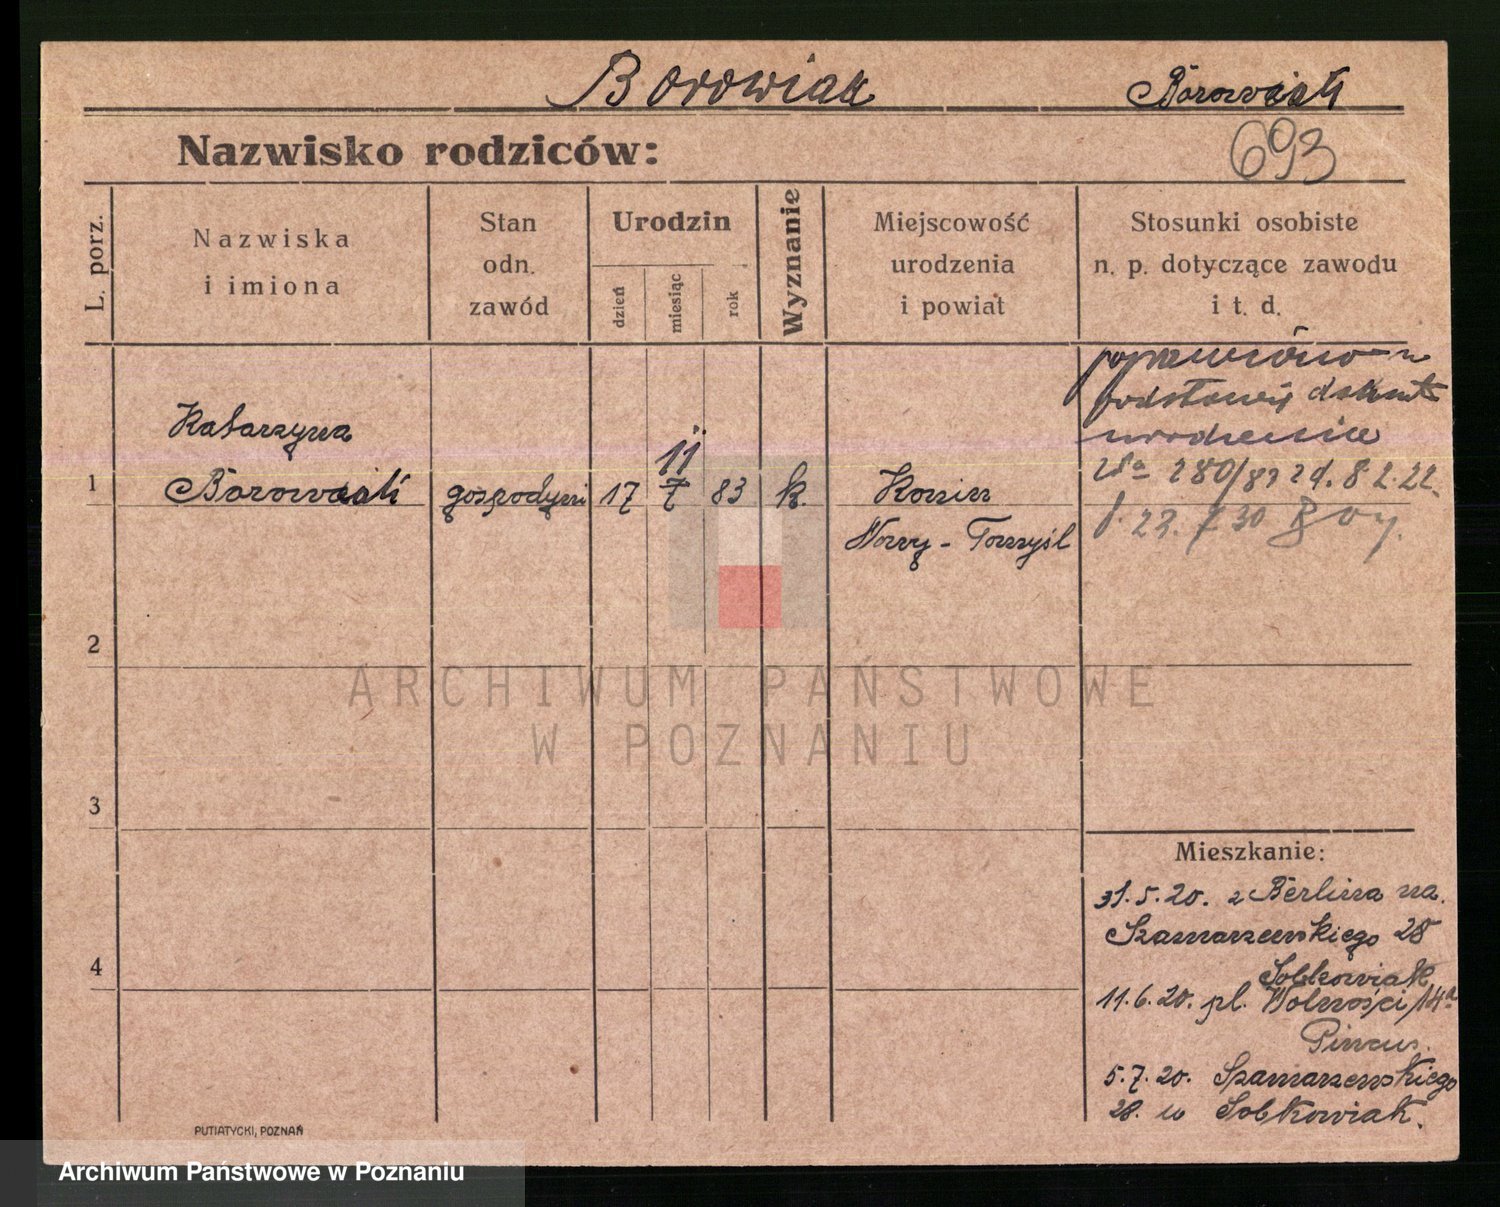 Borowiak
Borowiak
693
Nazwisko rodziców:
L. porz.
Nazwiska
i imiona
Stan
odn.
zawód
Urodzin
dzień
miesiąc
rok
Wyznanie
Miejscowość
urodzenia
i powiat
Stosunki osobiste
n. p. dotyczące zawodu
i t. d.
1
Katarzyna
Borowiak
gospodyni
17
11
7
83
k.
Konin
Nowy-Tomyśl
poprawiono n
podstawie
urodzenia
280/83 z d. 8.2.22.
23. 7 30
2
3
4
Mieszkanie:
31.5.20. z Berlina na
Szamarzewskiego 28
Sobkowiak
11.6.20. pl. Wolności 14a
Pincus.
5.7.20. Szamarzewskiego
28. u Sobkowiak.
PUTIATYCKI, POZNAŃ
ARCHIWUM PAŃSTWOWE
W POZNANIU
Archiwum Państwowe w Poznaniu